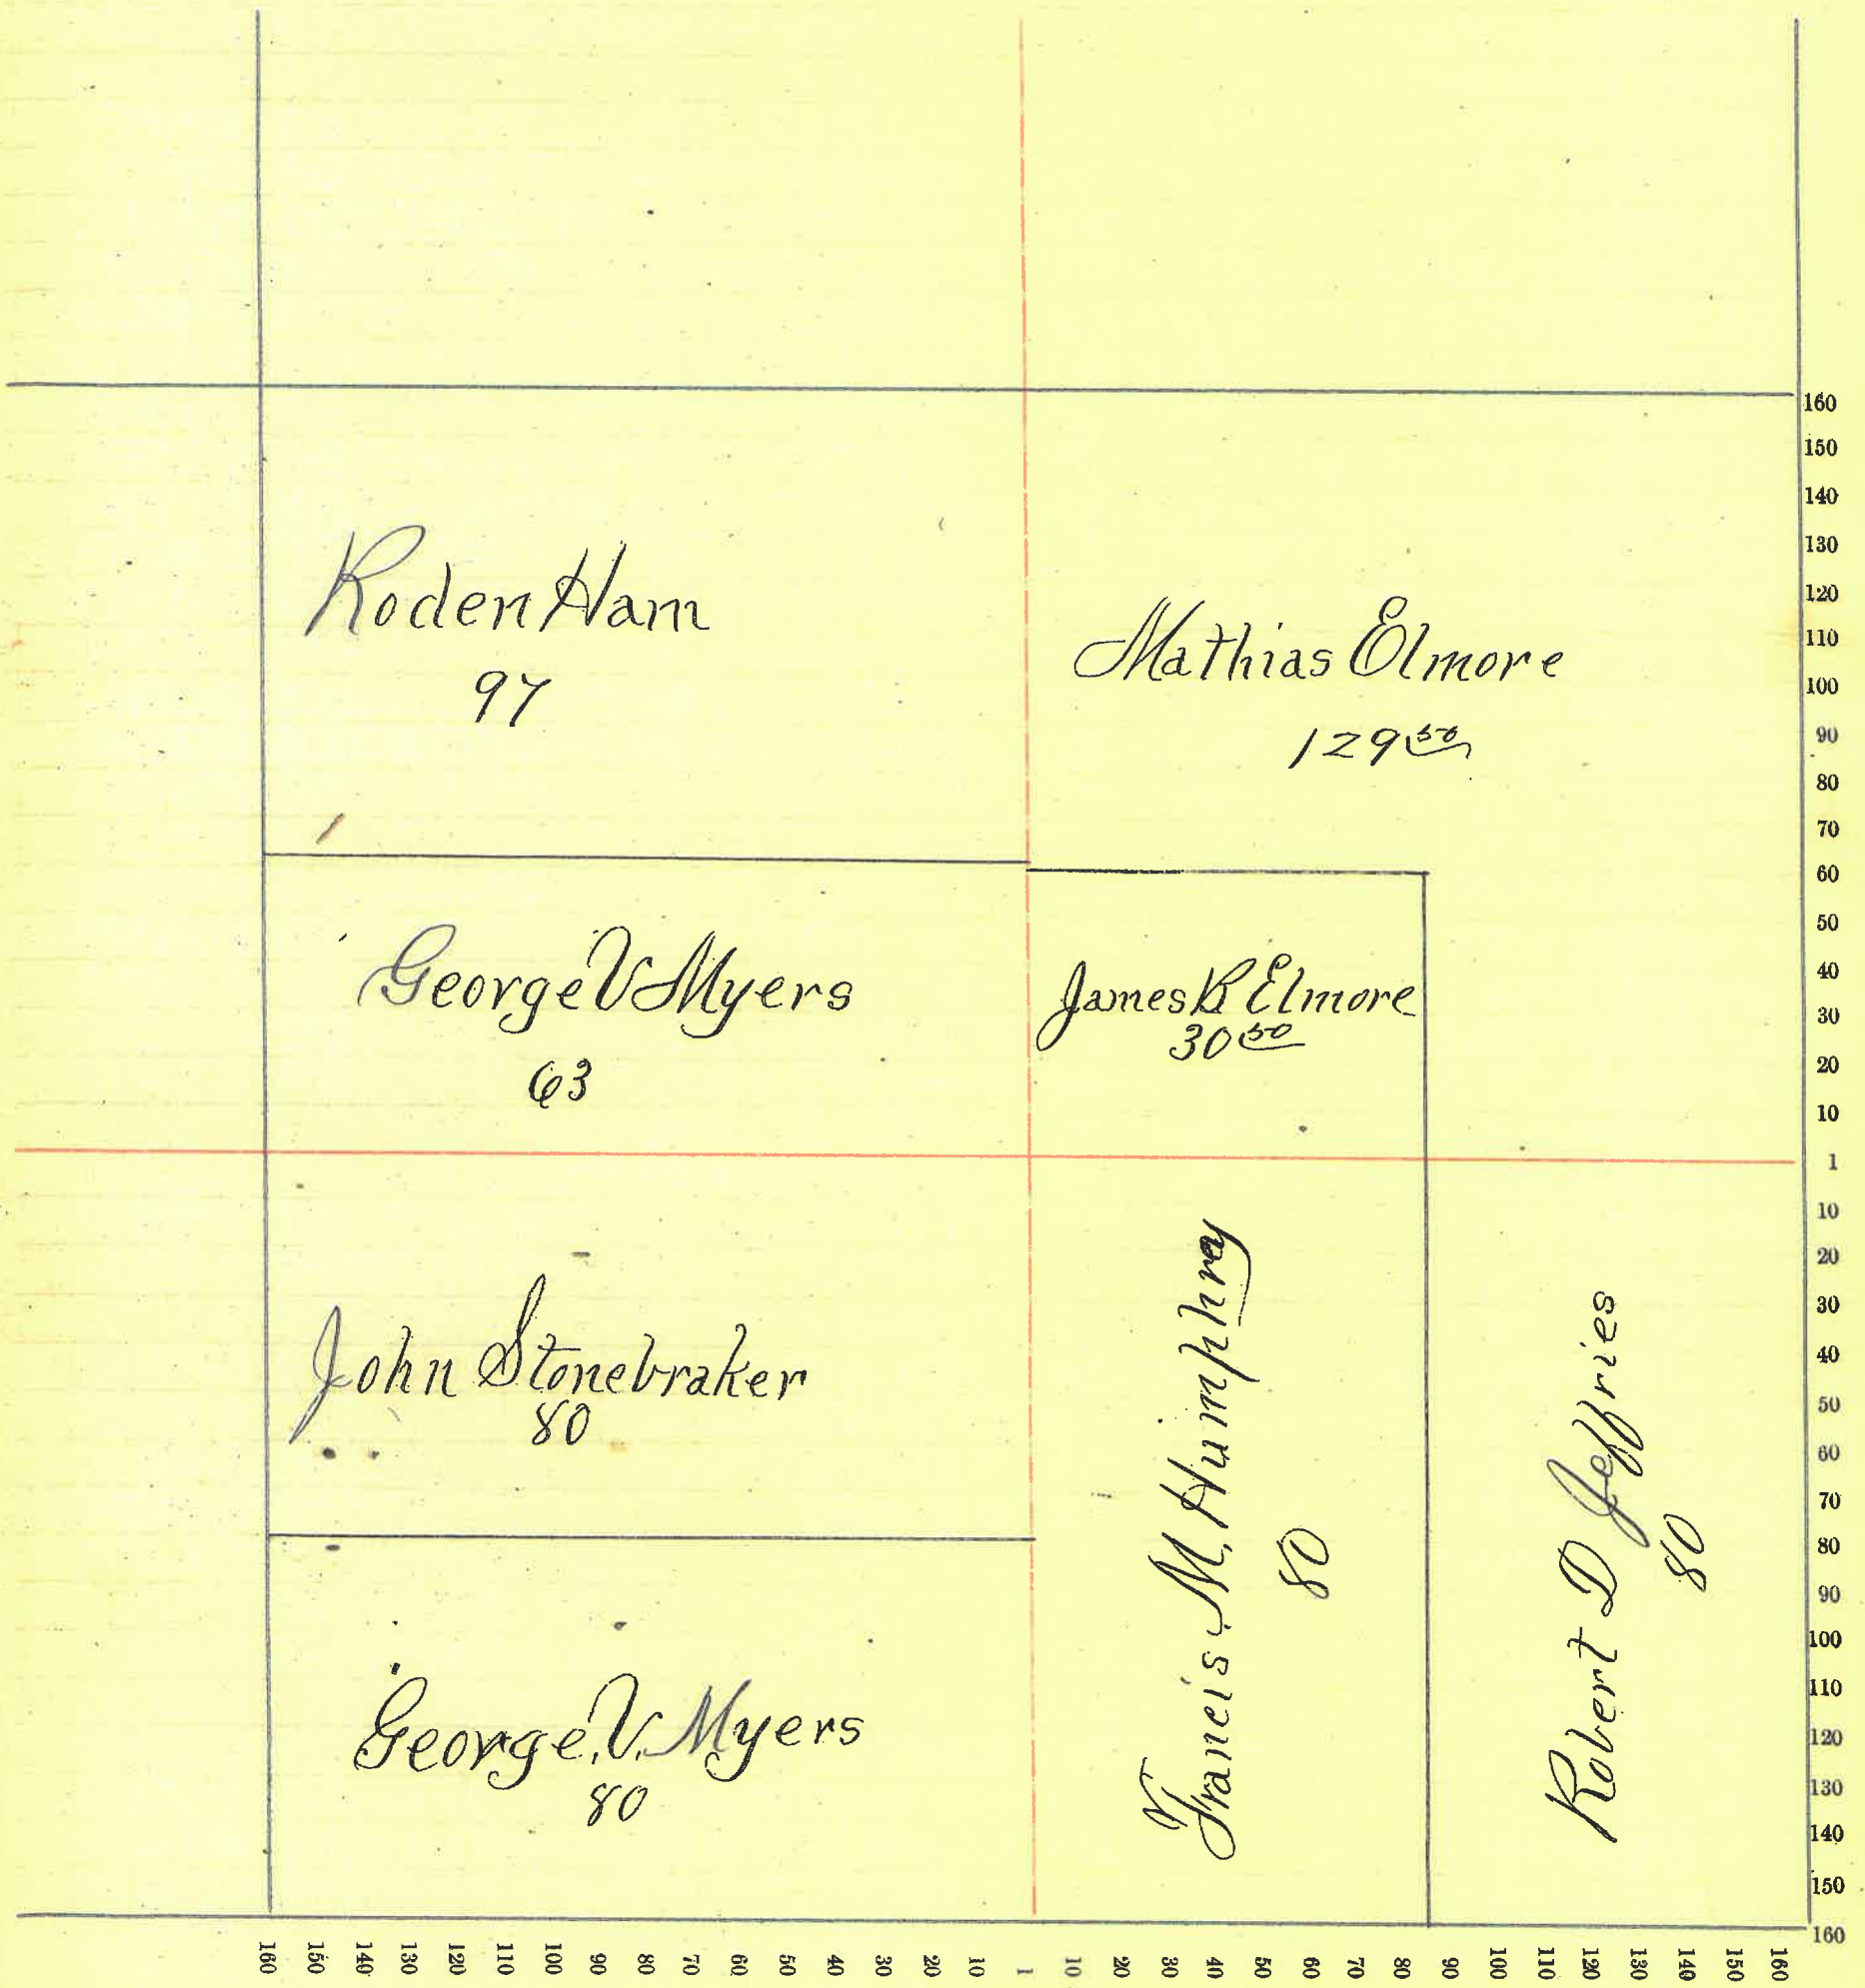 Roden Ham
97
Mathias Elmore
129 50
George V Myers
63
James B Elmore
30 50
John Stonebraker
80
George. V. Myers
80
Francis M. Humphrey
80
Robert D Jeffries
80
160
150
140
130
120
110
100
90
80
70
60
50
40
30
20
10
1
10
20
30
40
50
60
70
80
90
100
110
120
130
140
150
160
160 150 140 130 120 110 100 90 80 70 60 50 40 30 20 10 1 10 20 30 40 50 60 70 80 90 100 110 120 130 140 150 160